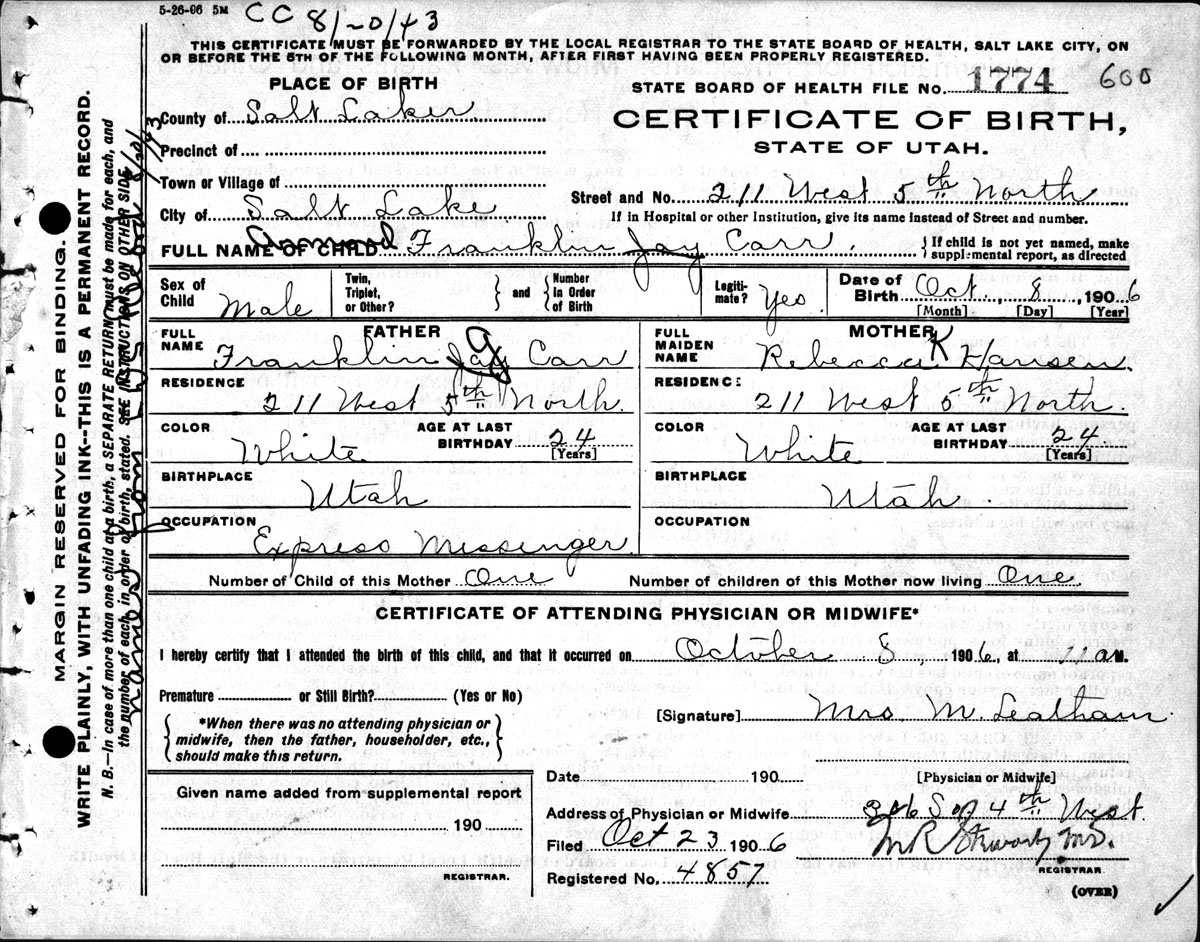 5-26-06 5M CC 8/20/43
THIS CERTIFICATE MUST BE FORWARDED BY THE LOCAL REGISTRAR TO THE STATE BOARD OF HEALTH, SALT LAKE CITY, ON
OR BEFORE THE 5TH OF THE FOLLOWING MONTH, AFTER FIRST HAVING BEEN PROPERLY REGISTERED.
PLACE OF BIRTH
STATE BOARD OF HEALTH FILE No. 1774 600
County of Salt Laker
CERTIFICATE OF BIRTH,
STATE OF UTAH.
Precinct of
Town or Village of
Street and No. 211 West 5th North
City of Salt Lake
If in Hospital or other Institution, give its name instead of Street and number.
FULL NAME OF CHILD Franklin Jay Carr.
If child is not yet named, make
supplemental report, as directed
Sex of Child Male
Twin, Triplet, or Other? and Number in Order of Birth
Legitimate? Yes
Date of Birth Oct. 8, 1906
[Month] [Day] [Year]
FATHER
FULL NAME Franklin Jay G Carr
RESIDENCE
211 West 5th North.
COLOR White AGE AT LAST BIRTHDAY 24
[Years]
BIRTHPLACE
Utah
OCCUPATION
Express Messenger
MOTHER
FULL MAIDEN NAME Rebecca K Hansen
RESIDENCE
211 West 5th North.
COLOR White AGE AT LAST BIRTHDAY 24
[Years]
BIRTHPLACE
Utah.
OCCUPATION
Number of Child of this Mother One Number of children of this Mother now living One
CERTIFICATE OF ATTENDING PHYSICIAN OR MIDWIFE*
I hereby certify that I attended the birth of this child, and that it occurred on October 8, 1906, at 11 a M.
Premature or Still Birth? (Yes or No)
*When there was no attending physician or
midwife, then the father, householder, etc.,
should make this return.
[Signature] Mrs. M. Leatham
[Physician or Midwife]
Given name added from supplemental report
190
REGISTRAR.
Date 190
Address of Physician or Midwife 4th West.
Filed Oct 23 1906
M.D.
REGISTRAR.
Registered No. 4857
(OVER)
MARGIN RESERVED FOR BINDING.
WRITE PLAINLY, WITH UNFADING INK--THIS IS A PERMANENT RECORD.
N. B.—In case of more than one child at a birth, a SEPARATE RETURN must be made for each, and
the number of each, in order of birth, stated. SEE INSTRUCTIONS ON OTHER SIDE.